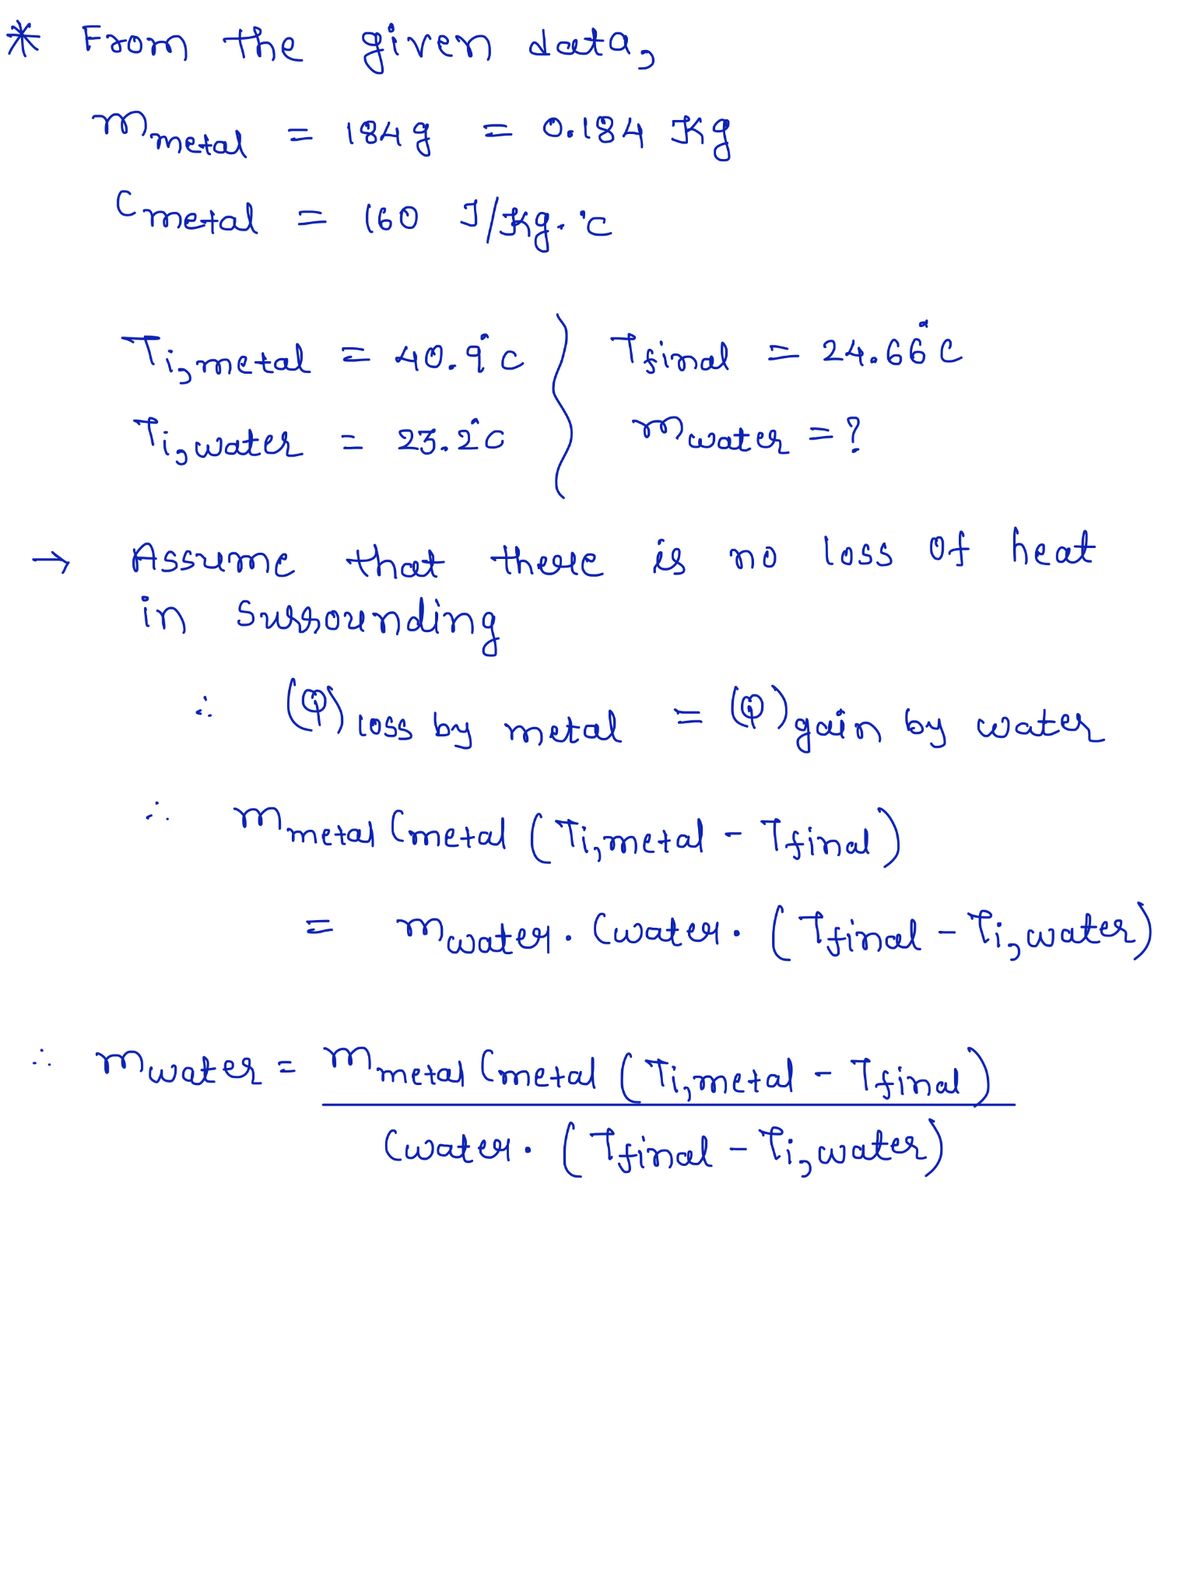 * From the given data,
m metal = 184g = 0.184 Kg
C metal = 160 J/Kg.°C
Ti,metal = 40.9°C
Ti,water = 23.2°C
Tfinal = 24.66°C
m water = ?
→ Assume that there is no loss of heat
in surrounding
∴ (Q) loss by metal = (Q) gain by water
∴ m metal C metal (Ti,metal - Tfinal)
= m water . C water . (Tfinal - Ti,water)
∴ m water = m metal C metal (Ti,metal - Tfinal)
C water . (Tfinal - Ti,water)